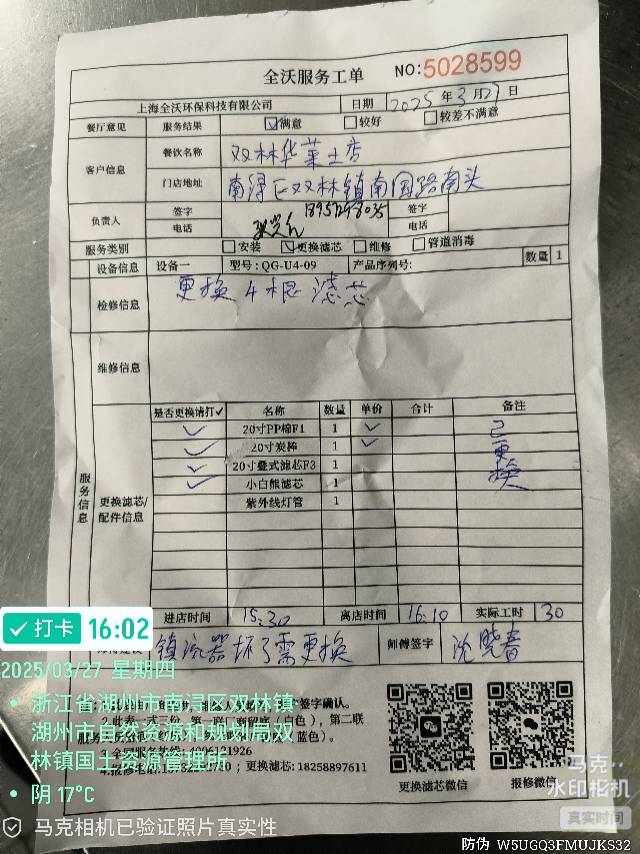 全沃服务工单
NO:5028599
上海全沃环保科技有限公司 日期 2025年3月27日
餐厅意见 服务结果 ☑满意 □较好 □较差不满意
客户信息 餐饮名称 双林华莱士店
门店地址 南浔区双林镇南国路南头
负责人 签字 电话 签字 电话
服务类别 □安装 ☑更换滤芯 □维修 □管道消毒
设备信息 设备一 型号:QG-U4-09 产品序列号: 数量 1
检修信息 更换4根滤芯
维修信息
服务信息
更换滤芯/配件信息
是否更换请打✓ 名称 数量 单价 合计 备注
✓ 20寸PP棉F1 1 ✓
✓ 20寸炭棒 1 ✓
✓ 20寸叠式滤芯F3 1
✓ 小白熊滤芯 1
紫外线灯管 1
已更换
进店时间 15:30 离店时间 16:10 实际工时 30
镇流器坏了需更换 师傅签字 沈晓春
签字确认。
2.此表一式三份，第一联：商留底（白色），第二联
蓝色）。
3.全国服务热线：4006121926
4.报修电话: ；更换滤芯: 18258897611
更换滤芯微信 报修微信
打卡 16:02
2025/03/27 星期四
浙江省湖州市南浔区双林镇
湖州市自然资源和规划局双
林镇国土资源管理所
阴 17°C
马克相机已验证照片真实性
马克
水印相机
真实时间
防伪 W5UGQ3FMUJKS32